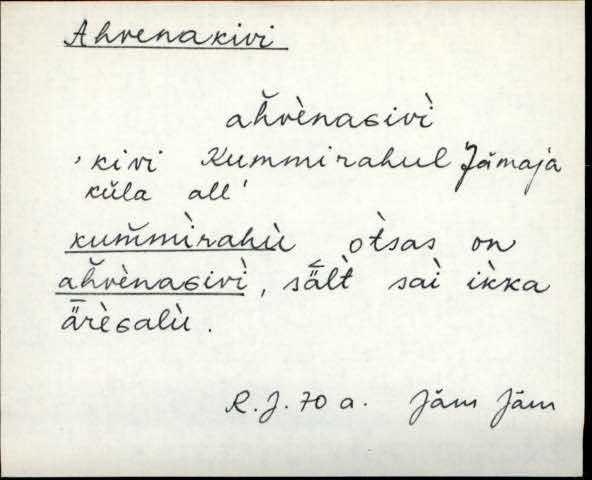 Ahvenakivi
aȟvènaɢivì
'kivi Kummirahul Jämaja
küla all'
kum̌mìrahù òtsas on
aȟvènaɢivì, sä̀lt̀ saì ik̀ka
ǟrèɢalù.
R. J. 70 a. Jäm Jäm